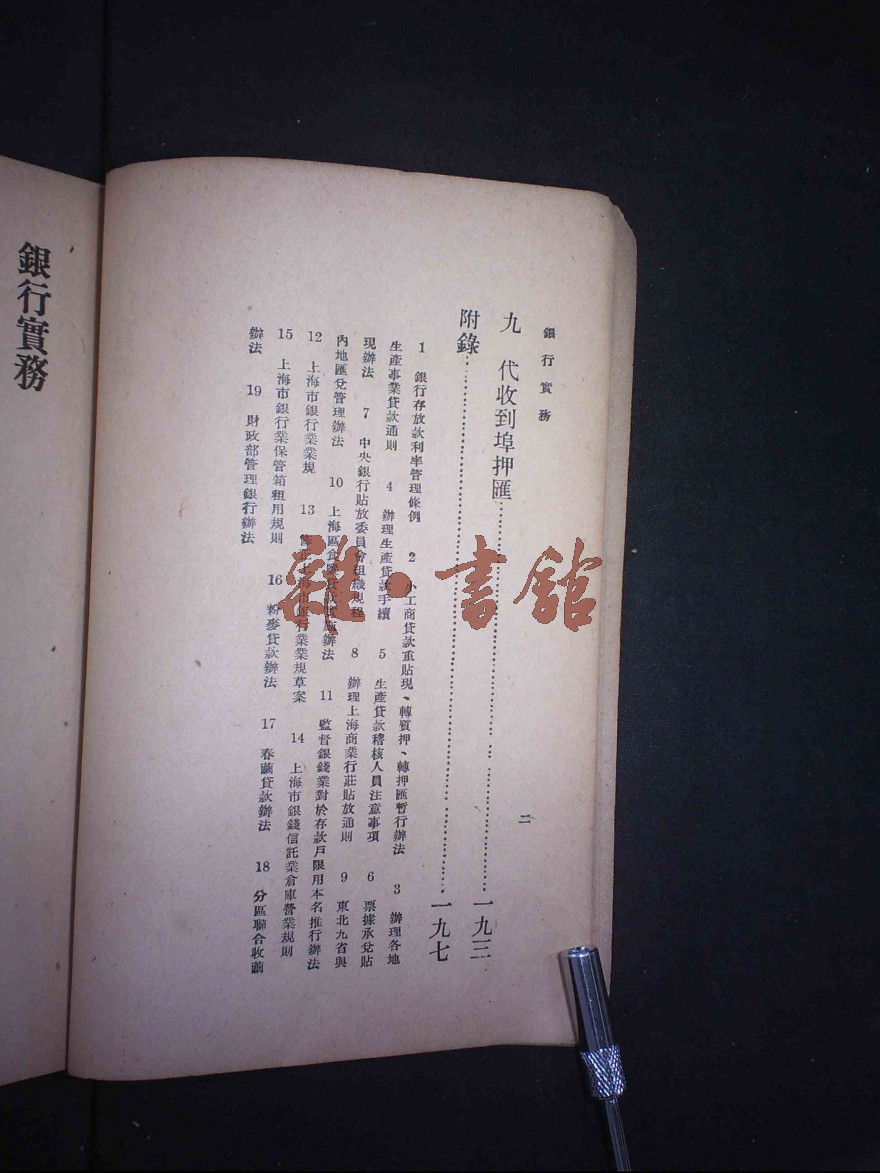 銀行實務
二
九 代收到埠押匯……一九三
附錄……一九七
1 銀行存放款利率管理條例 2 小工商貸款重貼現、轉質押、轉押匯暫行辦法 3 辦理各地
生產事業貸款通則 4 辦理生產貸款手續 5 生產貸款稽核人員注意事項 6 票據承兌貼
現辦法 7 中央銀行貼放委員會組織規程 8 辦理上海商業行莊貼放通則 9 東北九省與
內地匯兌管理辦法 10 上海區食 實施辦法 11 監督銀錢業對於存款戶限用本名推行辦法
12 上海市銀行業業規 13 修正上海市銀行業業規草案 14 上海市銀錢信託業倉庫營業規則
15 上海市銀行業保管箱租用規則 16 粉麥貸款辦法 17 春繭貸款辦法 18 分區聯合收繭
辦法 19 財政部管理銀行辦法
銀行實務
雜·書館